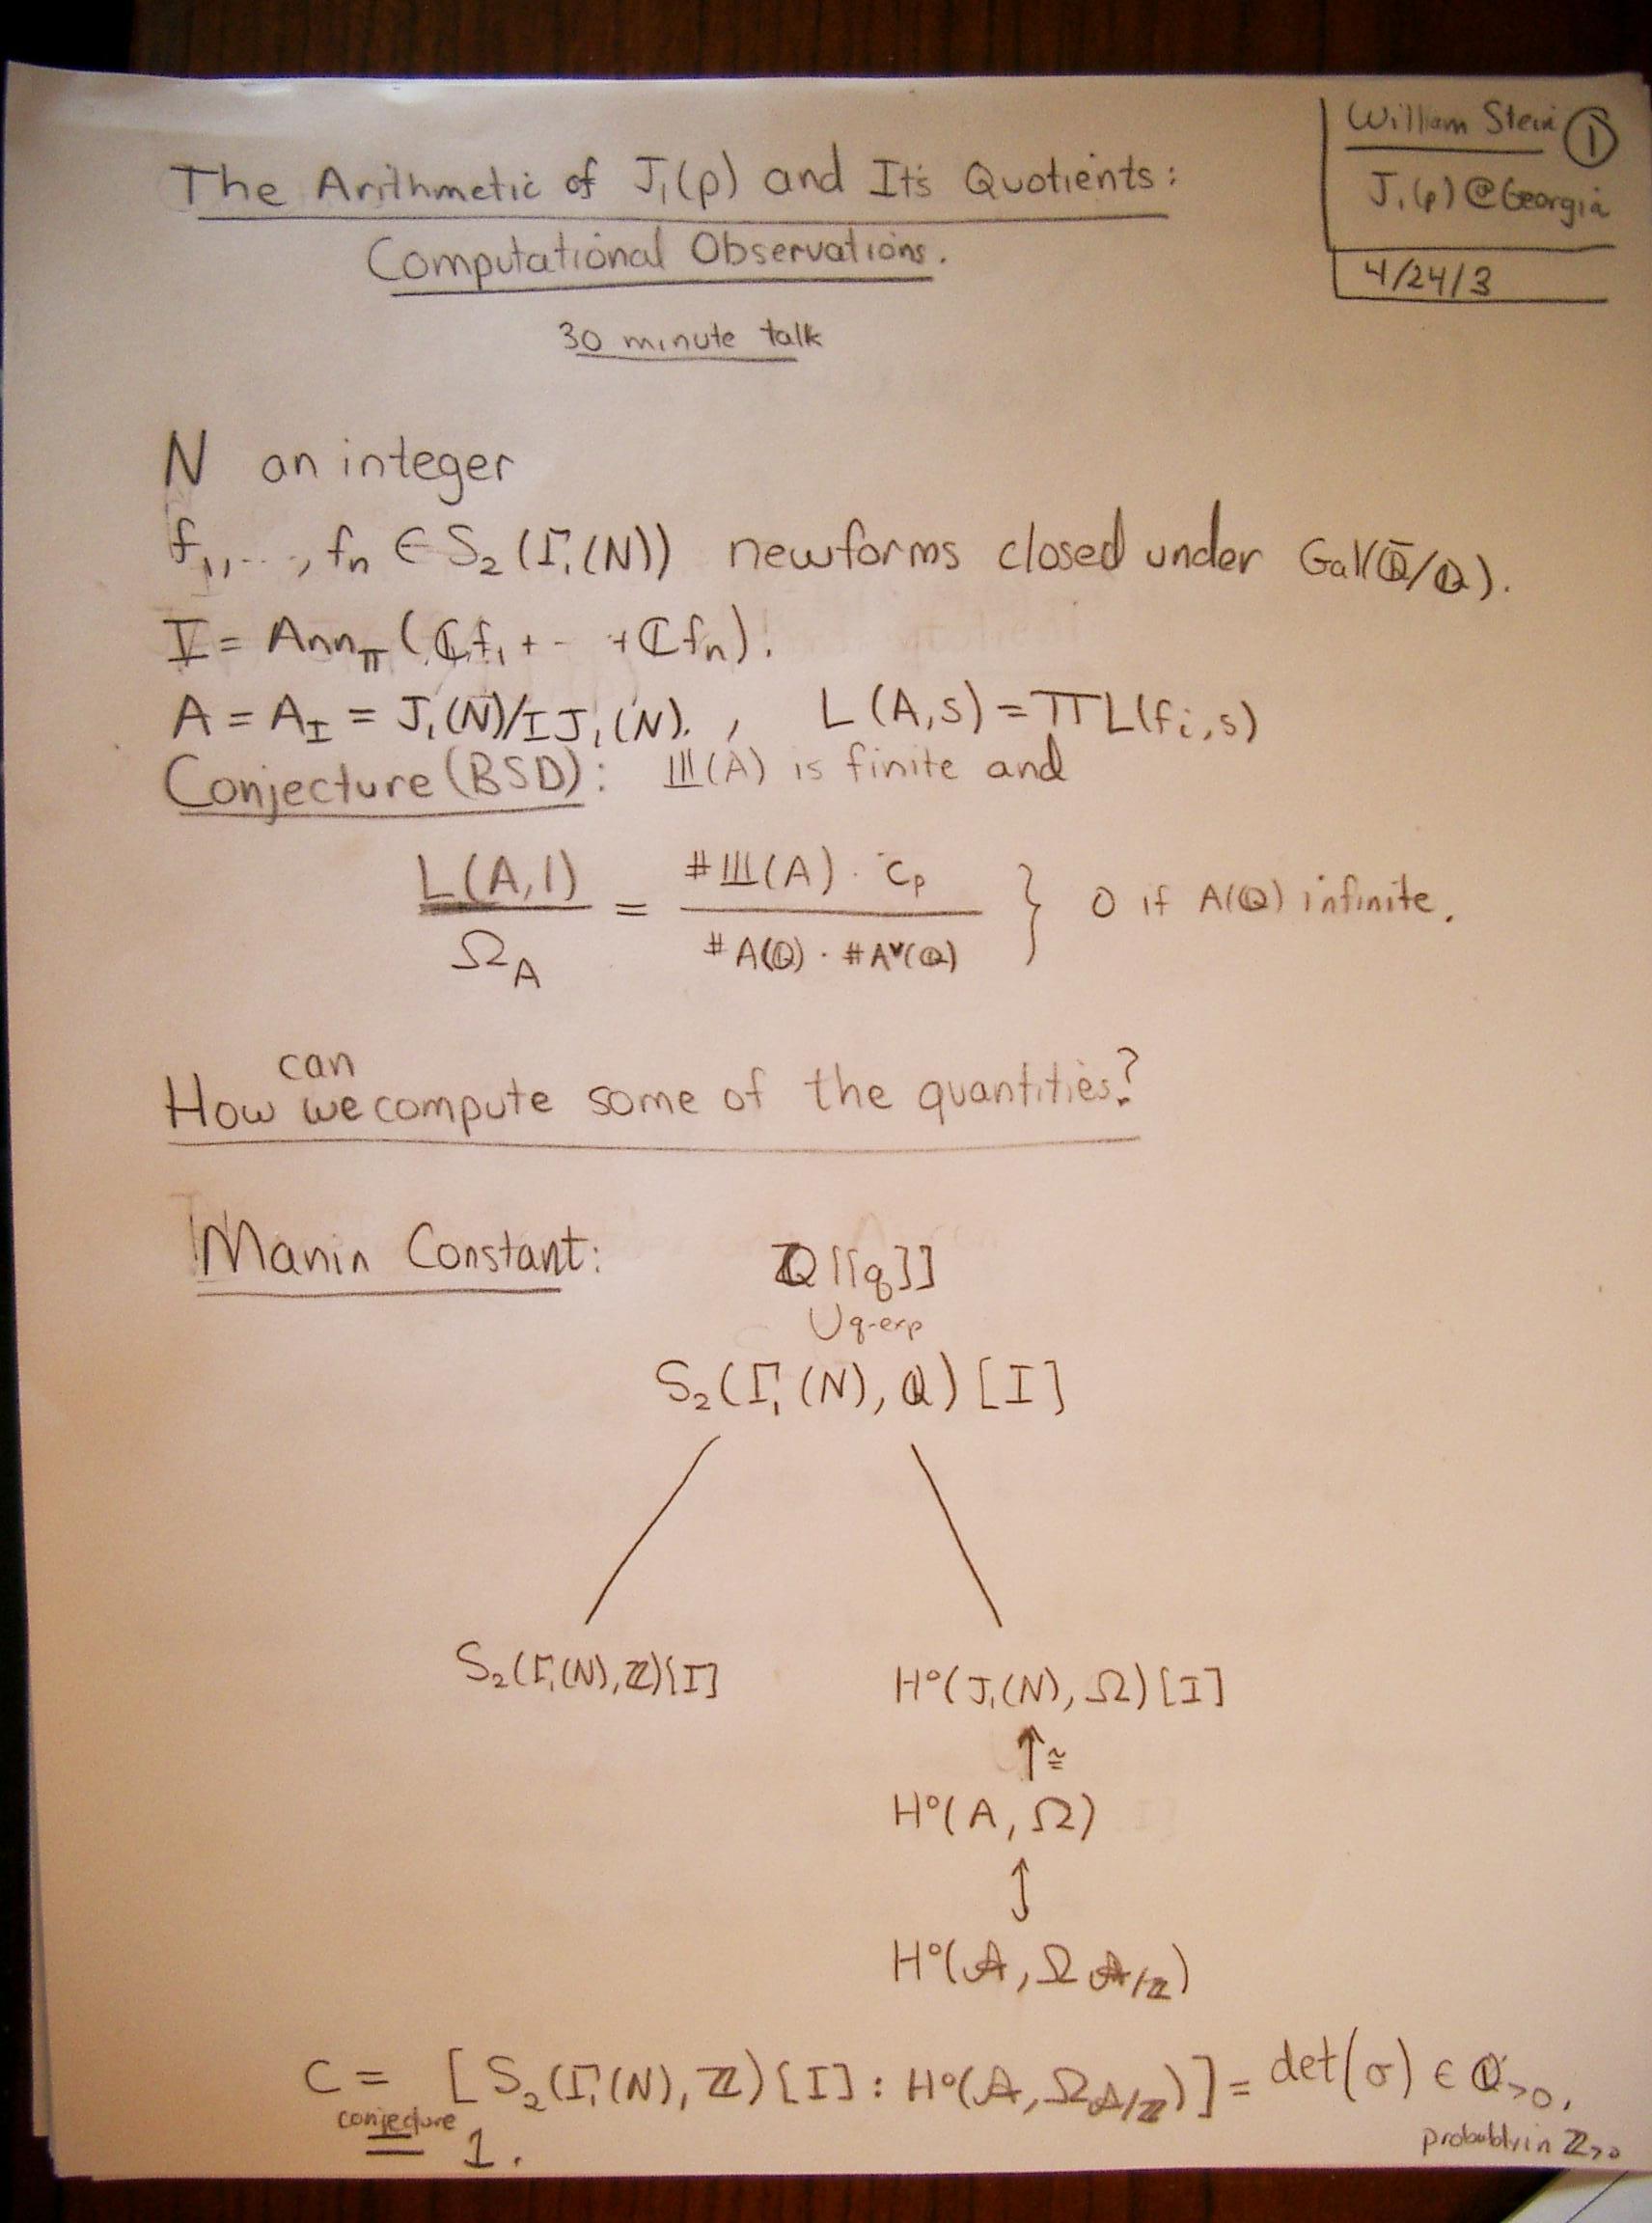 William Stein ①
J₁(p)@Georgia
4/24/3
The Arithmetic of J₁(p) and It's Quotients:
Computational Observations.
30 minute talk
N an integer
f₁,..., fₙ ∈ S₂(Γ₁(N)) newforms closed under Gal(ℚ̄/ℚ).
I = Ann_𝕋(ℂf₁+-·+ℂfₙ).
A = A_I = J₁(N)/IJ₁(N)., L(A,s) = ΠL(fᵢ,s)
Conjecture (BSD): Ш(A) is finite and
L(A,1)/Ω_A = #Ш(A)·cₚ / #A(ℚ)·#A^∨(ℚ) } 0 if A(ℚ) infinite.
can
How we compute some of the quantities?
Manin Constant:
[[q]]
∪ q-exp
S₂(Γ₁(N),ℚ)[I]
S₂(Γ₁(N),ℤ)[I] H⁰(J₁(N),Ω)[I]
↑≅
H⁰(A,Ω)
↑
H⁰(𝒜,Ω_𝒜/ℤ)
C = [S₂(Γ₁(N),ℤ)[I] : H⁰(𝒜,Ω_𝒜/ℤ)] = det(σ) ∈ ℚ_>0.
conjecture = 1. probably in ℤ_>0